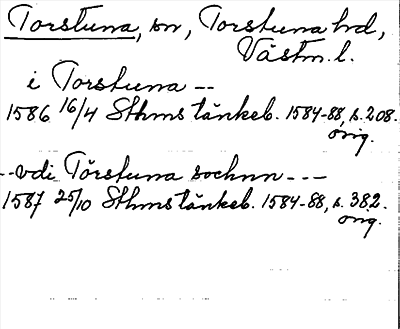 Torstuna, sn, Torstuna hd,
Västm. l.
i Torstuna --
1586 16/4 Sthms tänkeb. 1584-88, s. 208.
orig.
--vdi Torstuna sochnn ---
1587 25/10 Sthms tänkeb. 1584-88, s. 382.
orig.